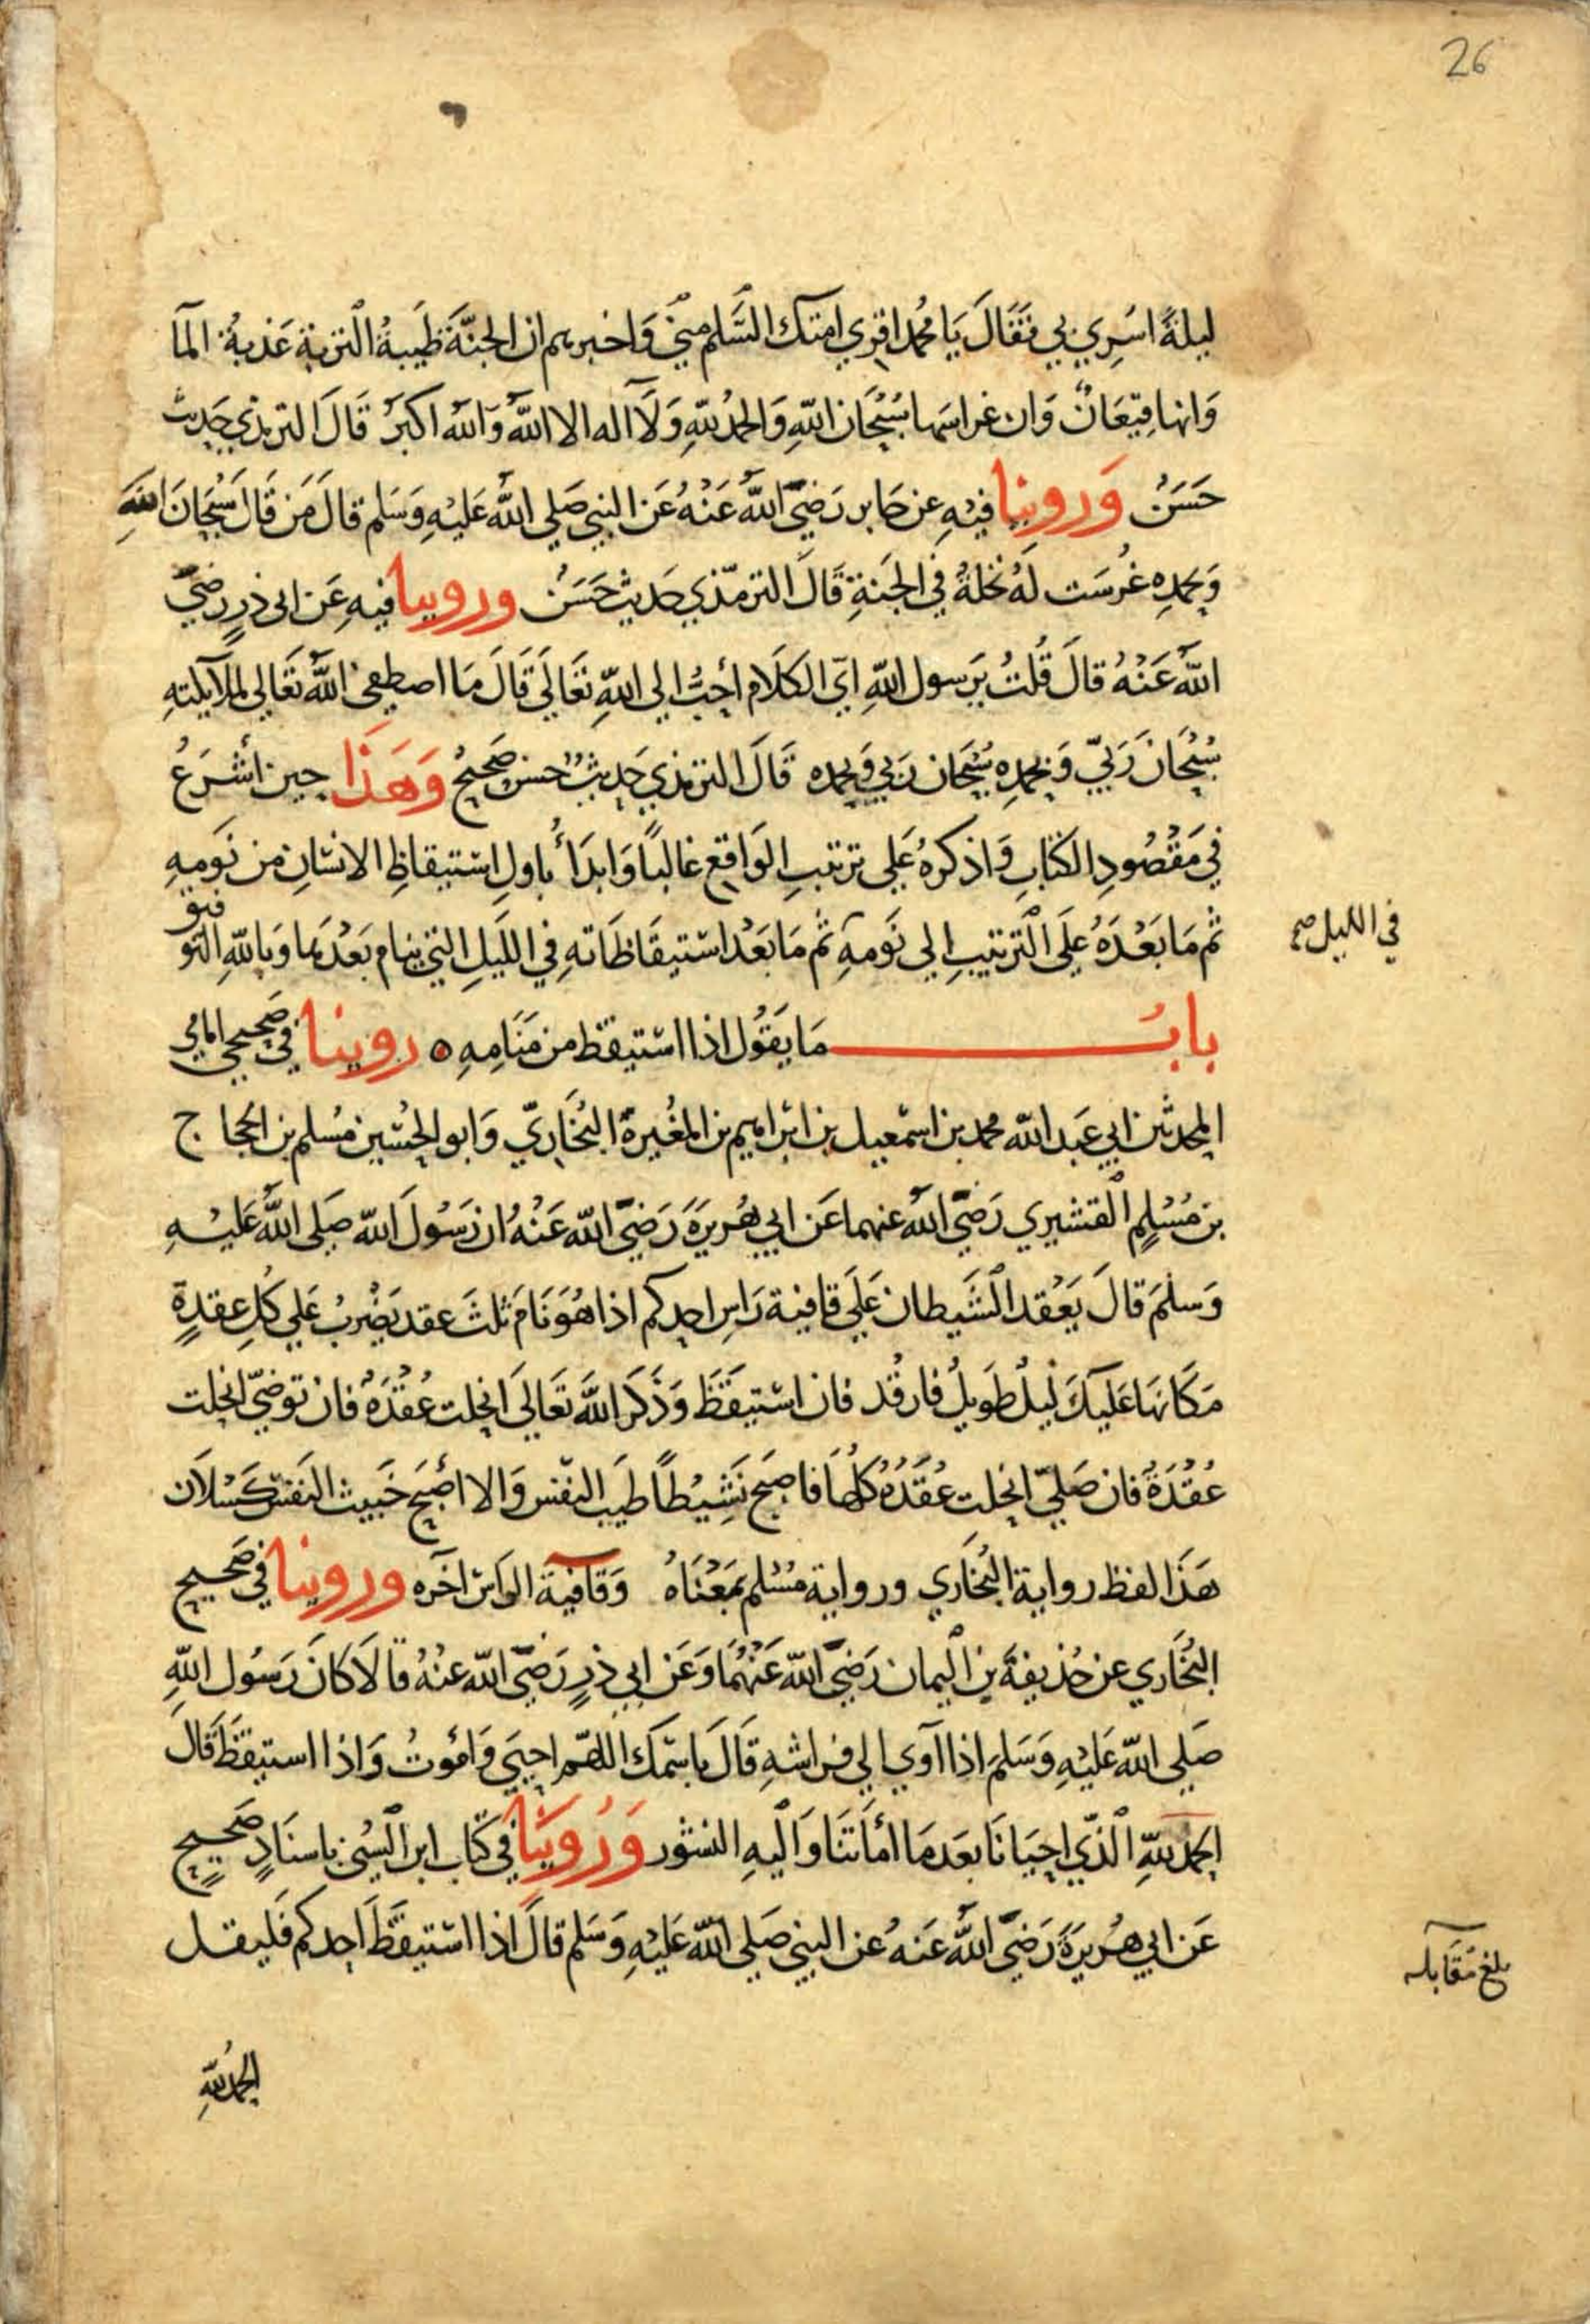 26
ليلةً اسُرِي بي فَقَالَ يَا مُحمد اقرِي امتك السَّلم منيّ وَاخبرهم ان الجنَّةَ طَيبةُ التربة عَذبةُ المآ
وَانها قيَعَانٌ وَان غراسَها سُبْحَان اللهِ وَالحمدُ للهِ وَلَآ اله الا اللهُ وَالله اكبَرُ قَالَ الترمذي حَديث
حَسَنٌ وَروينا فيهِ عن جَابر رَضيَ اللهُ عَنْهُ عَن النبي صَلي اللهُ عَليْهِ وَسَلم قالَ مَن قَالَ سُبْحَانَ اللهِ
وَبحمدِه غُرسَت لَهُ نخلةُ في الجَنةِ قَالَ الترمّذي حَديث حَسَنٌ وروينا فيهِ عَن ابى ذرٍ رضيَ
اللهُ عَنْهُ قالَ قُلتُ يَرسول اللهِ ايّ الكَلَام أحبُّ الي اللهِ تعَالَي قَالَ مَا اصطفيٰ اللهُ تَعَالي لملآيكتهِ
سُبْحَانَ رَبيّ وَبحمدِه سُبحَان رَبي وَبحمده قَالَ الترمذي حَديثٌ حسن صَحيحٌ وَهَذَا حين أشرَعُ
في مَقْصُودِ الكتابِ وَاذكرهُ عَلي ترتيبِ الوَاقع غالبًا وَابدَأُ باولِ اسْتيقاظِ الانسَانِ من نَومهِ
ثم مَا بَعْدَهُ عَلَي الترتيبِ الي نَومهِ ثم مَا بَعْدَ اسْتيقَاظَاتهِ في اللَيلِ التي ينام بَعْدَها وَباللهِ التوفيق
في الليل صح
بابُ مَا يَقُول اذا اسْتيقظ من مَنَامِهِ ه روينا في صَحيحي امامي
المحدثين ابي عَبد الله محمد بن اسْمعيل بن ابْراهيم بن المُغيرة البُخَاريّ وَابو الحُسَين مُسْلم بن الحجاج
بن مُسْلمٍ القشيري رَضيَ اللهُ عنهما عَن ابي هُريرَةَ رَضيَ الله عَنْهُ ان رَسُولَ الله صَلى اللهُ عَليْهِ
وَسَلمَ قالَ يَعْقد الشَيطان عَلَي قافية رَاسِ احدكم اذا هُوَ نَامَ ثلثَ عقد يَضْربُ عَلي كُلِ عقدةٍ
مَكَانهَا عَليكَ لَيْلٌ طَويلٌ فارقُد فان اسْتيقَظَ وَذَكَر اللهَ تَعَالَي انحلت عُقْدَهٌ فان توضيّ انحلت
عُقْدَةٌ فان صَليّ انحلت عُقَدُهُ كُلهَا فاصبَح نَشِيْطًا طَيبَ النفس وَالا أصْبَح خَبيث النَفسْ كَسْلاَن
هَذَا لفظ رواية البُخَاري ورواية مسْلم بمَعْنَاهُ وَقَافية الراسْ آخره وروينا في صَحيح
البُخَاري عن حُذيفةَ بن اليمان رَضيَ الله عَنْهُمَا وَعَن ابي ذرٍ رَضيَ الله عنْهُ قالَا كانَ رَسُول اللهِ
صَلي الله عَليْهِ وَسَلمَ اذا آوي الي فراشهِ قَالَ باسْمكَ اللهّم احيَي وَامُوتُ وَاذا استيقظَ قَال
الحَمد للهِ الذّي احيَانَا بَعدَمَا أمَاتنَا وَاليهِ النشور وَرُوَينَا في كتَاب ابن السُني باسنَادٍ صَحيحٍ
عَن ابي هُريرَةَ رَضيَ اللهُ عَنهُ عن النبي صَلي الله عَليْهِ وَسَلم قالَ اذا اسْتيقَظَ احدكم فَليقل
بلغ مقابله
الحمدُ للهِ